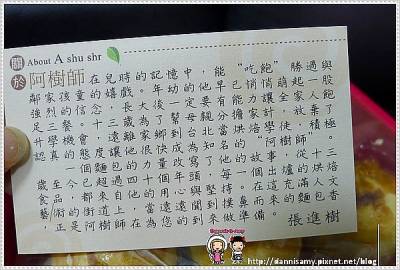 關於 About A shu shr
阿樹師在兒時的記憶中,能“吃飽”勝過與
鄰家孩童的嬉戲。年幼的他早已悄悄萌起一股
強烈的信念,長大後一定要有能力讓全家人飽
足三餐。十三歲為了幫母親分擔家計,放棄了
升學機會,遠離家鄉到台北當烘焙學徒。積極
認真的態度讓他很快成為知名的“阿樹師”。
一個麵包的力量改寫了他的故事,從十三
歲至今已超過四十個年頭,每一個出爐的烘焙
食品,都來自他的用心與堅持。在這充滿人文
藝術的街道上,當遠遠的聞到撲鼻的麵包香
,正是阿樹師在為您的到來做準備。
張進樹
http://dannisamy.pixnet.net/blog